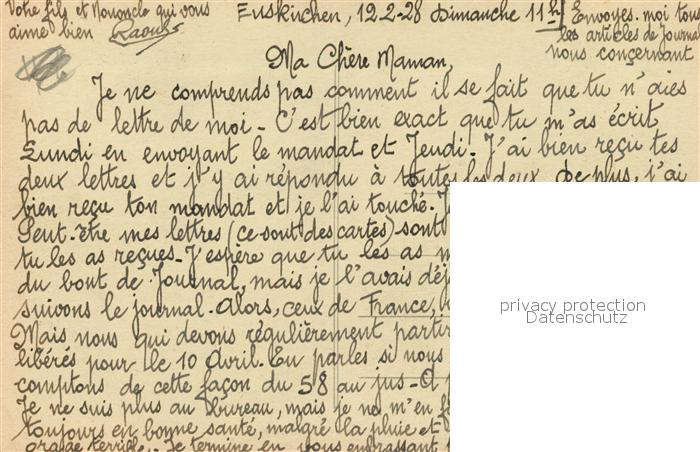 Votre fils et Nononcle qui vous
aime bien Raoul
Euskirchen, 12-2-28 Dimanche 11h
Envoyes-moi tous
les articles de Journa
nous conçernant
Ma Chère Maman,
Je ne comprends pas comment il se fait que tu n'aies
pas de lettre de moi - C'est bien exact que tu m'as écrit
Lundi en envoyant le mandat et Jeudi. J'ai bien reçu tes
deux lettres et j'y ai répondu à toutes les deux. De plus, j'ai
bien reçu ton mandat et je l'ai touché.
Peut-être mes lettres (ce sont des cartes) sont
tu les as reçues - J'espère que tu les as
du bout de Journal, mais je l'avais déj
suivons le journal. Alors, ceux de France,
Mais nous qui devons régulièrement partir
libérés pour le 10 Avril. En parles si nous
comptons de cette façon du 58 au jus -
Je ne suis plus au bureau, mais je ne m'en
toujours en bonne santé, malgré la pluie et
orage terrible. Je termine en vous embrassant
privacy protection
Datenschutz